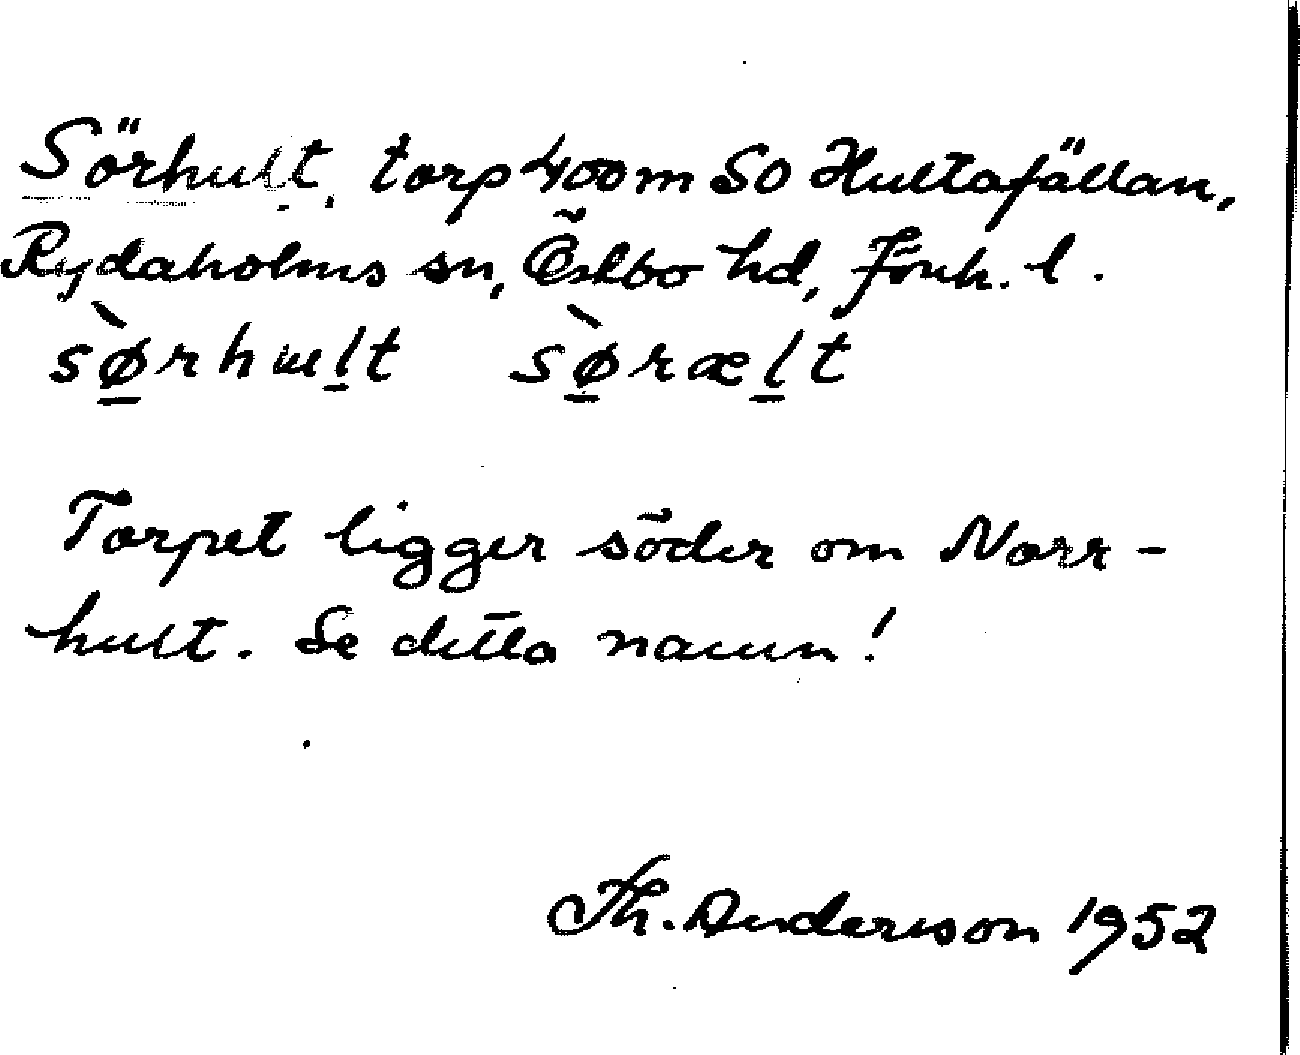 Sörhult, torp 400 m SO Hultafällan,
Rydaholms sn, Östbo hd, Jönk. l.
sø̀rhult sø̀rælt
Torpet ligger söder om Norr-
hult. Se detta namn!
Th. Andersson 1952